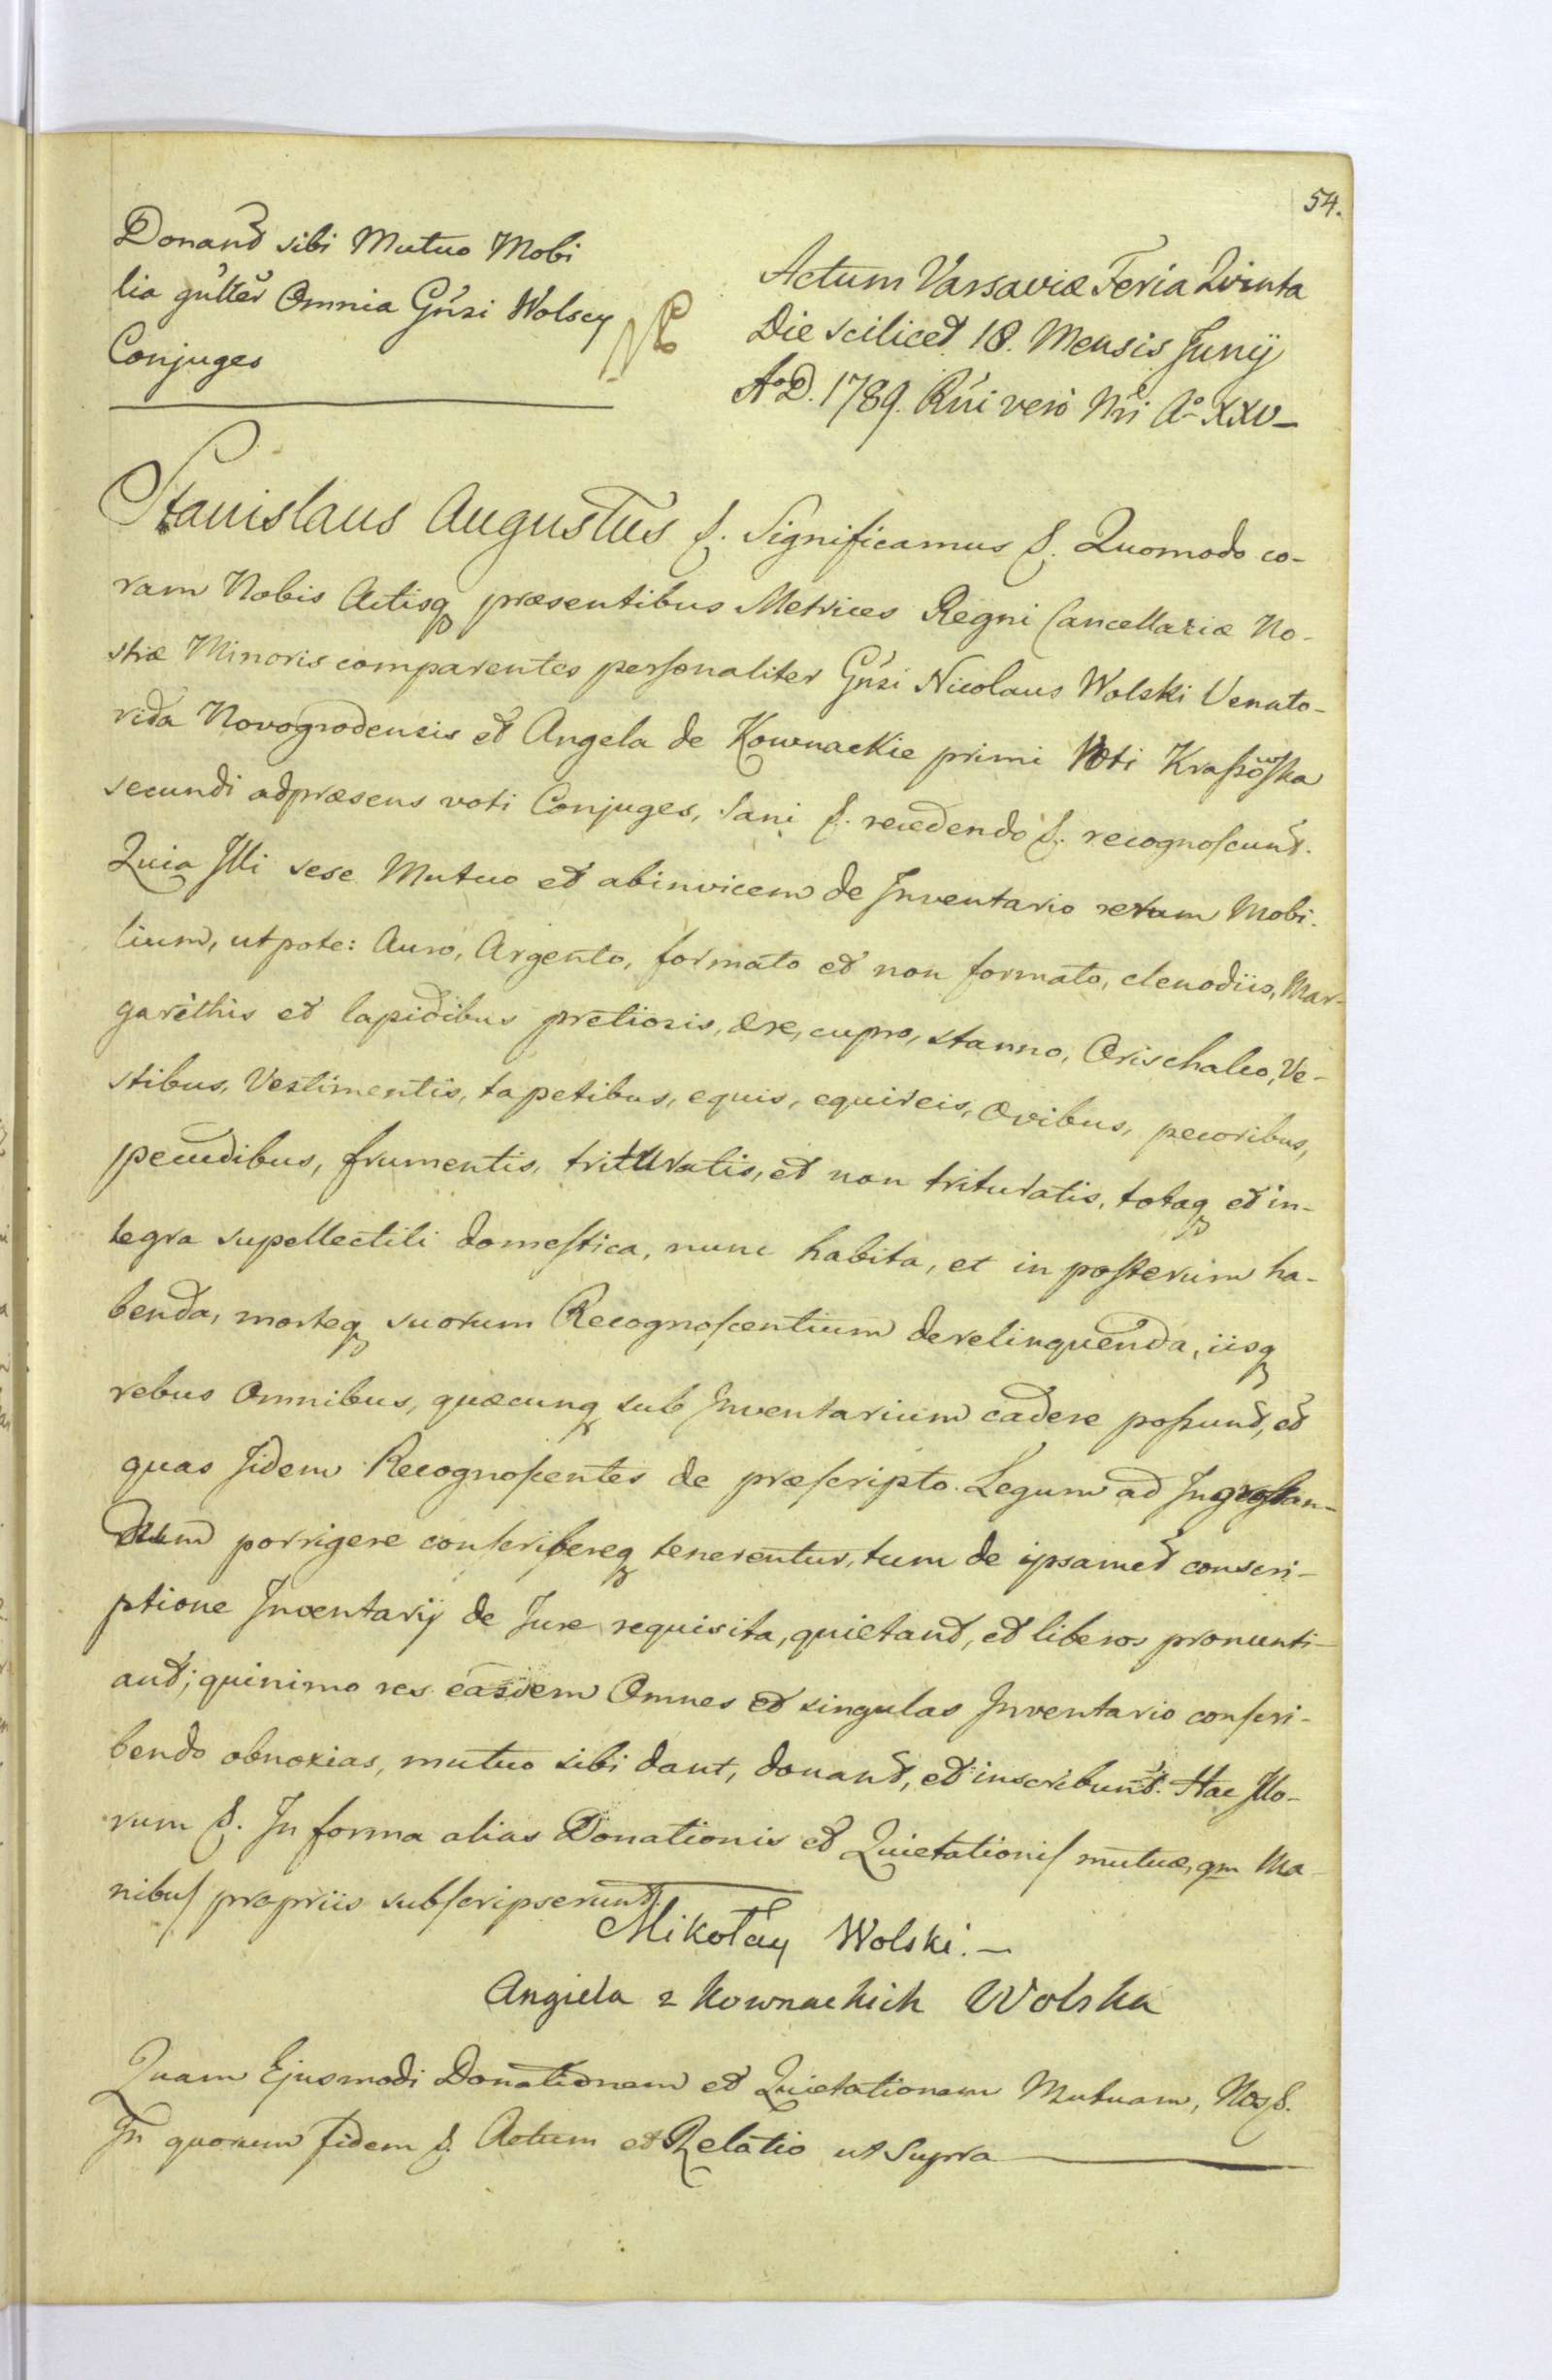 54.
Donand sibi Mutuo Mobi
lia gulter Omnia Gnsi Wolscy
Conjuges
Actum Varsaviæ Feria Quinta
Die scilicet 18. Mensis Junij
AoD. 1789. Rni verò Nri Ao XXV_
Stanislaus Augustus &. Significamus &. Quomodo co-
ram Nobis Actisq præsentibus Metrices Regni Cancellariæ No-
stræ Minoris comparentes personaliter Gnsi Nicolaus Wolski Venato-
rida Novogrodensis et Angela de Kownackie primi Voti
secundi adpræsens voti Conjuges, Sani &. recedendo &. recognoscunt.
Quia Illi sese Mutuo et abinvicem de Inventario rerum Mobi-
lium, utpote: Auro, Argento, formato et non formato, clenodiis, Mar-
garithis et lapidibus pretiosis, ære, cupro, stanno, Orischalco, Ve-
stibus, Vestimentis, tapetibus, equis, equireis, Ovibus, pecoribus,
pecudibus, frumentis, trituratis, et non trituratis, totaq et in-
tegra supellectili domestica, nunc habita, et in posterum ha-
benda, morteq suorum Recognoscentium derelinquenda, iisq
rebus Omnibus, quæcunq sub Inventarium cadere possunt, et
quas Iidem Recognoscentes de præscripto Legum ad Ingrossan-
dum porrigere conscribereq tenerentur, tum de ipsamet conscri-
ptione Inventarij de Jure requisita, quietant, et liberos pronunti-
ant; quinimo res easdem Omnes et singulas Inventario conscri-
bendo obnoxias, mutuo sibi dant, donant, et inscribunt. Hac Illo-
rum &. In forma alias Donationis et Quietationis mutuæ, qm Ma-
nibus propriis subscripserunt.
Mikołay Wolski._
Angiela z Kownackich Wolska
Quam Ejusmodi Donationem et Quietationem Mutuam, Nos &.
In quorum fidem &. Actum et Relatio ut Supra